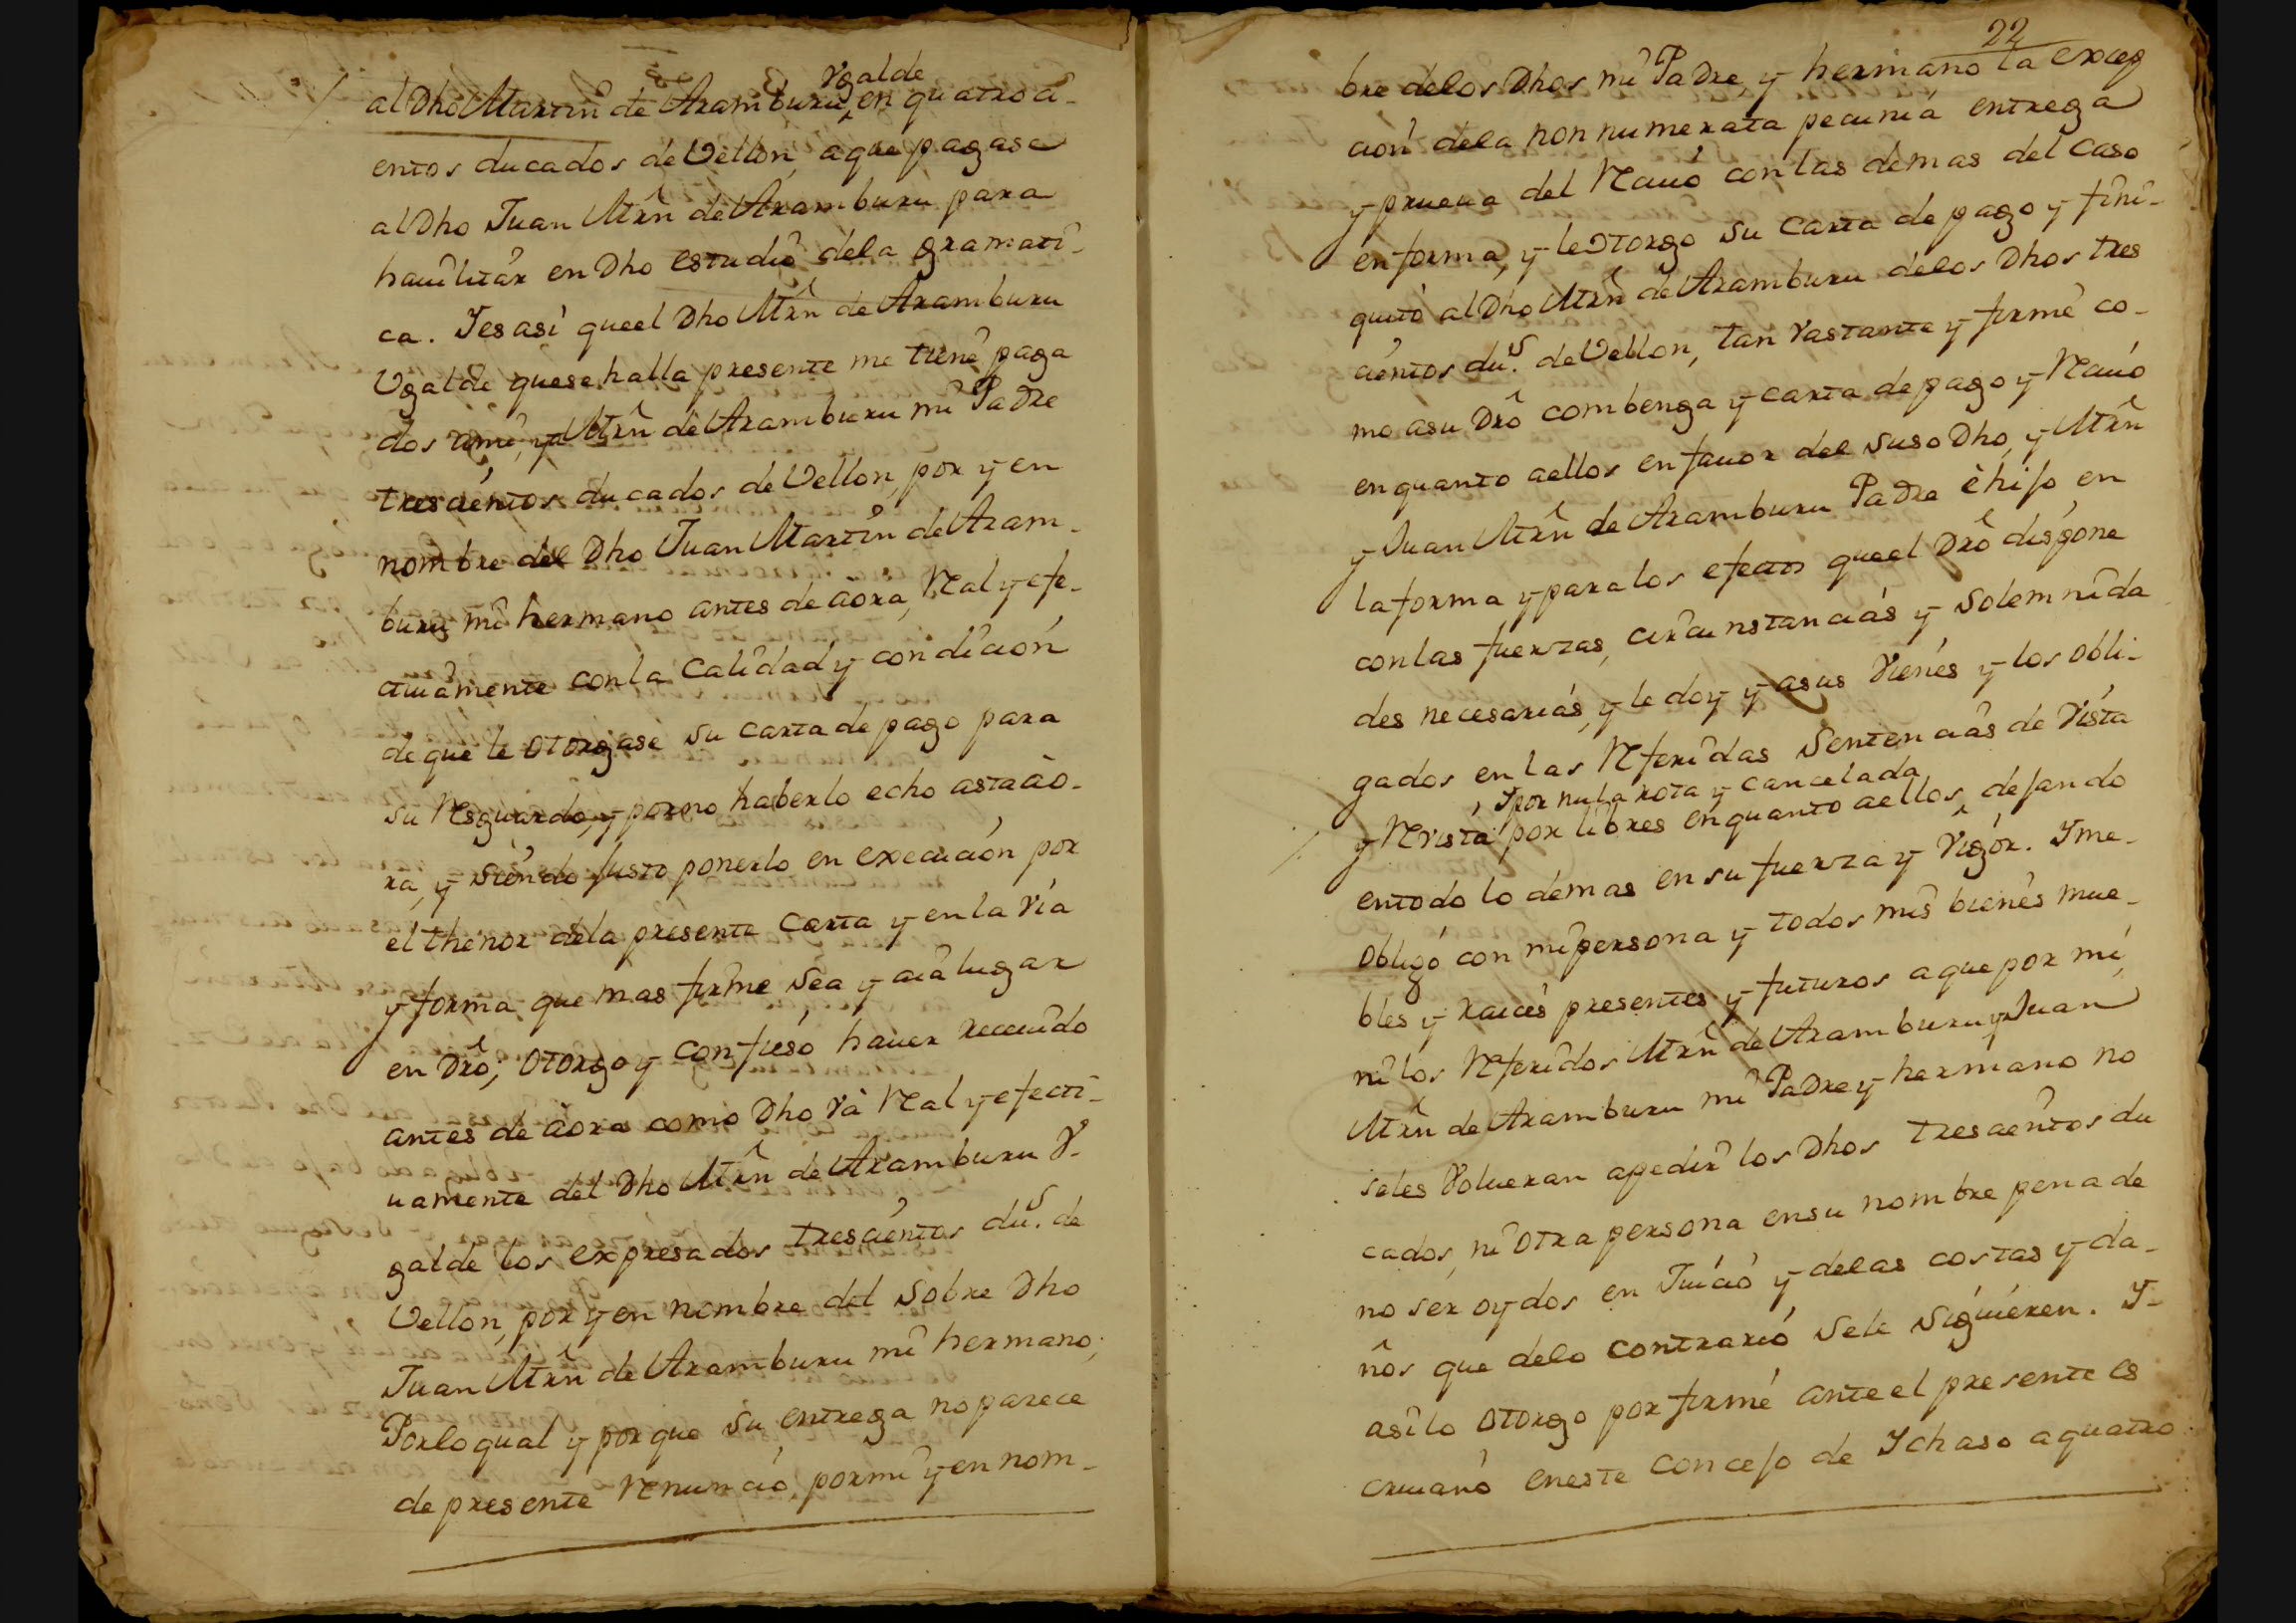 Vgalde
al Dho Martin de Aramburu, en quatro ci-
entos ducados de Vellon, a que pagase
al Dho Juan Mrn de Aramburu para
hauilitar en Dho estudio dela gramati-
ca. Y es asi que el Dho Mrn de Aramburu
Vgalde que se halla presente me tiene paga
dos ami, y a Mrn de Aramburu mi Padre
trescientos ducados de Vellon, por y en
nombre del Dho Juan Martin de Aram-
buru mi hermano antes de aora, Real y efe-
ctiuamente con la Calidad y condicion
de que le otorgase su carta de pago para
su Resguardo, y por no haberlo echo asta ao-
ra, y siendo justo ponerlo en execucion por
el thenor dela presente Carta y en la via
y forma que mas firme sea y aia lugar
en Dro; otorgo y confieso hauer Receuido
antes de aora como Dho va Real y efecti-
uamente del Dho Mrn de Aramburu V-
galde los expresados trescientos dus. de
Vellon, por y en nombre del sobre Dho
Juan Mrn de Aramburu mi hermano;
Por lo qual y porque su entrega no parece
de presente Renuncio, por mi y en nom-
22
bre delos Dhos mi Padre, y hermano la excep
cion dela non numerata pecunia entrega
y prueua del Reciuo con las demas del caso
en forma, y le otorgo su Carta de pago y fini-
quito al Dho Mrn de Aramburu delos Dhos tres
cientos dus. de Vellon, tan vastante y firme co-
mo a su Dro combenga y carta de pago y Reciuo
en quanto a ellos en fauor del suso Dho, y Mrn
y Juan Mrn de Aramburu Padre è hijo en
la forma y para los efectos que el Dro dispone
con las fuerzas, circunstancias y solemnida
des necesarias, y le doy y a sus vienes y los obli-
gados en las Referidas Sentencias de Vista
, y por nula rota y cancelada
y Revista por libres en quanto a ellos, dejando
en todo lo demas en su fuerza y vigor. Y me
obligo con mi persona y todos mis bienes mue-
bles y raices presentes y futuros a que por mi,
ni los Referidos Mrn de Aramburu, y Juan
Mrn de Aramburu mi Padre y hermano no
se les Volueran a pedir los Dhos trescientos du
cados, ni otra persona en su nombre pena de
no ser oydos en Juicio y delas costas y da-
ños que delo contrario se le siguieren. Y-
asi lo otorgo por firme ante el presente es
criuano en este Concejo de Ichaso a quatro